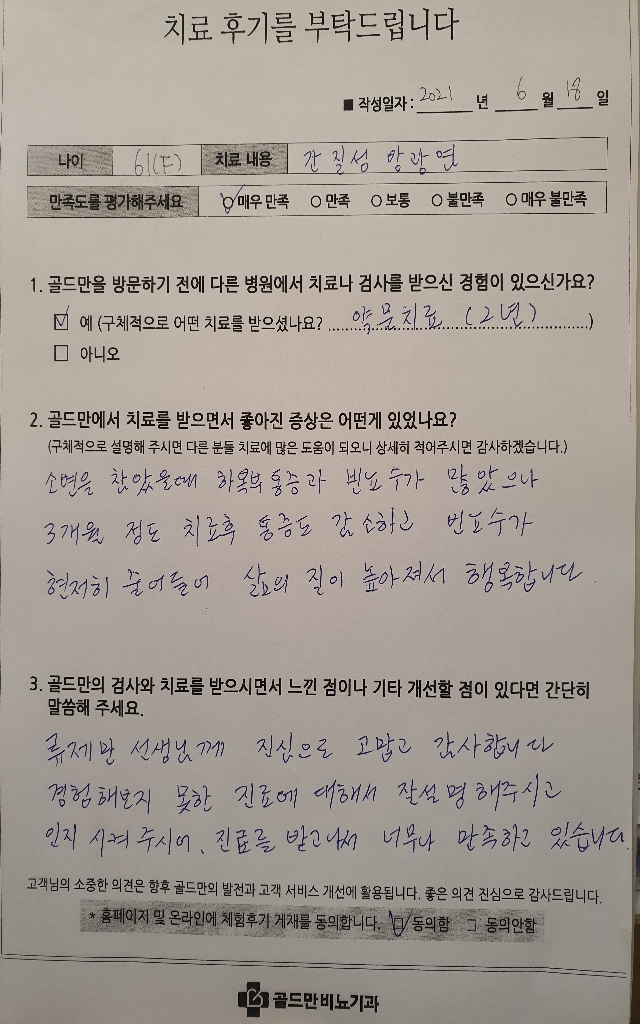 치료 후기를 부탁드립니다
■ 작성일자 : 2021 년 6 월 18 일
나이 61(F) 치료 내용 간질성 방광염
만족도를 평가해주세요 매우 만족 만족 보통 불만족 매우 불만족
1. 골드만을 방문하기 전에 다른 병원에서 치료나 검사를 받으신 경험이 있으신가요?
예 (구체적으로 어떤 치료를 받으셨나요? 약물치료 (2년) )
아니오
2. 골드만에서 치료를 받으면서 좋아진 증상은 어떤게 있었나요?
(구체적으로 설명해 주시면 다른 분들 치료에 많은 도움이 되오니 상세히 적어주시면 감사하겠습니다.)
소변을 참았을때 하복부 통증과 빈뇨수가 많았으나
3개월 정도 치료후 통증도 감소하고 빈뇨수가
현저히 줄어들어 삶의 질이 높아져서 행복합니다.
3. 골드만의 검사와 치료를 받으시면서 느낀 점이나 기타 개선할 점이 있다면 간단히
말씀해 주세요.
류제만 선생님께 진심으로 고맙고 감사합니다
경험해보지 못한 진료에 대해서 잘설명해주시고
인지 시켜 주시어, 진료를 받고나서 너무나 만족하고 있습니다.
고객님의 소중한 의견은 향후 골드만의 발전과 고객 서비스 개선에 활용됩니다. 좋은 의견 진심으로 감사드립니다.
* 홈페이지 및 온라인에 체험후기 게재를 동의합니다. 동의함 동의안함
골드만비뇨기과